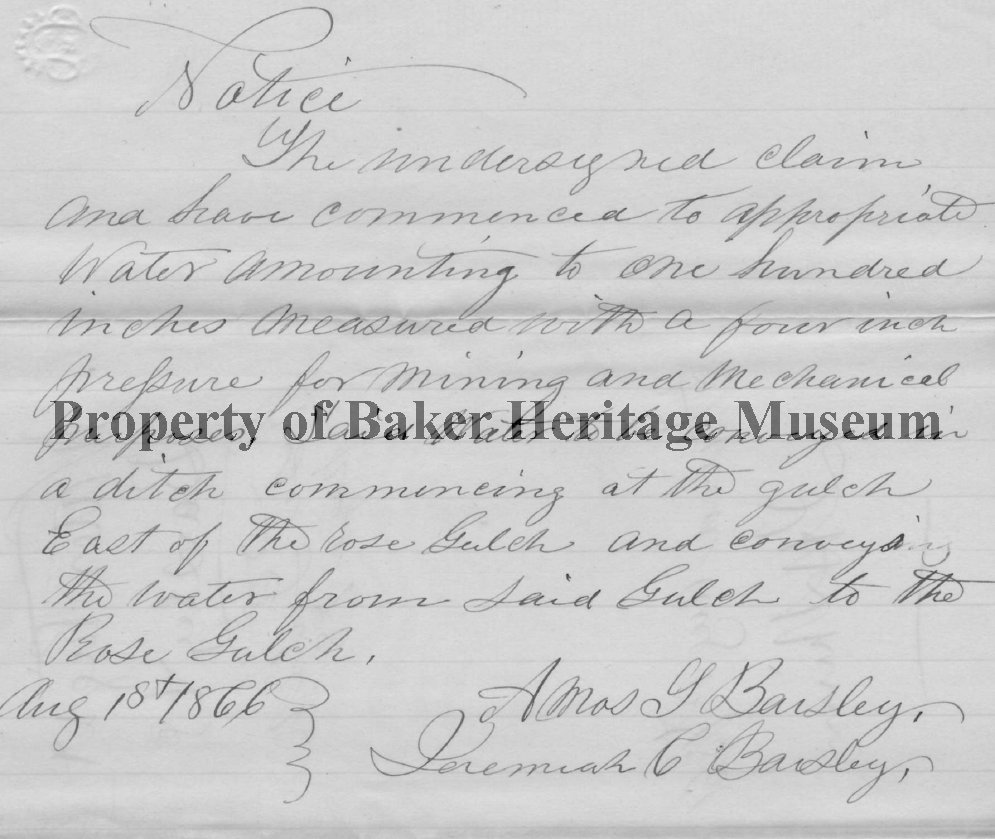 Notice
The undersigned claim
and have commenced to appropriate
Water amounting to one hundred
inches measured with a four inch
pressure for mining and mechanical
Property of Baker Heritage Museum
purposes, Said Water to be conveyed in
a ditch commencing at the gulch
East of the rose Gulch and conveying
the water from said Gulch to the
Rose Gulch.
Aug 1st 1866
Amos G Baisley,
Jeremiah C Baisley,